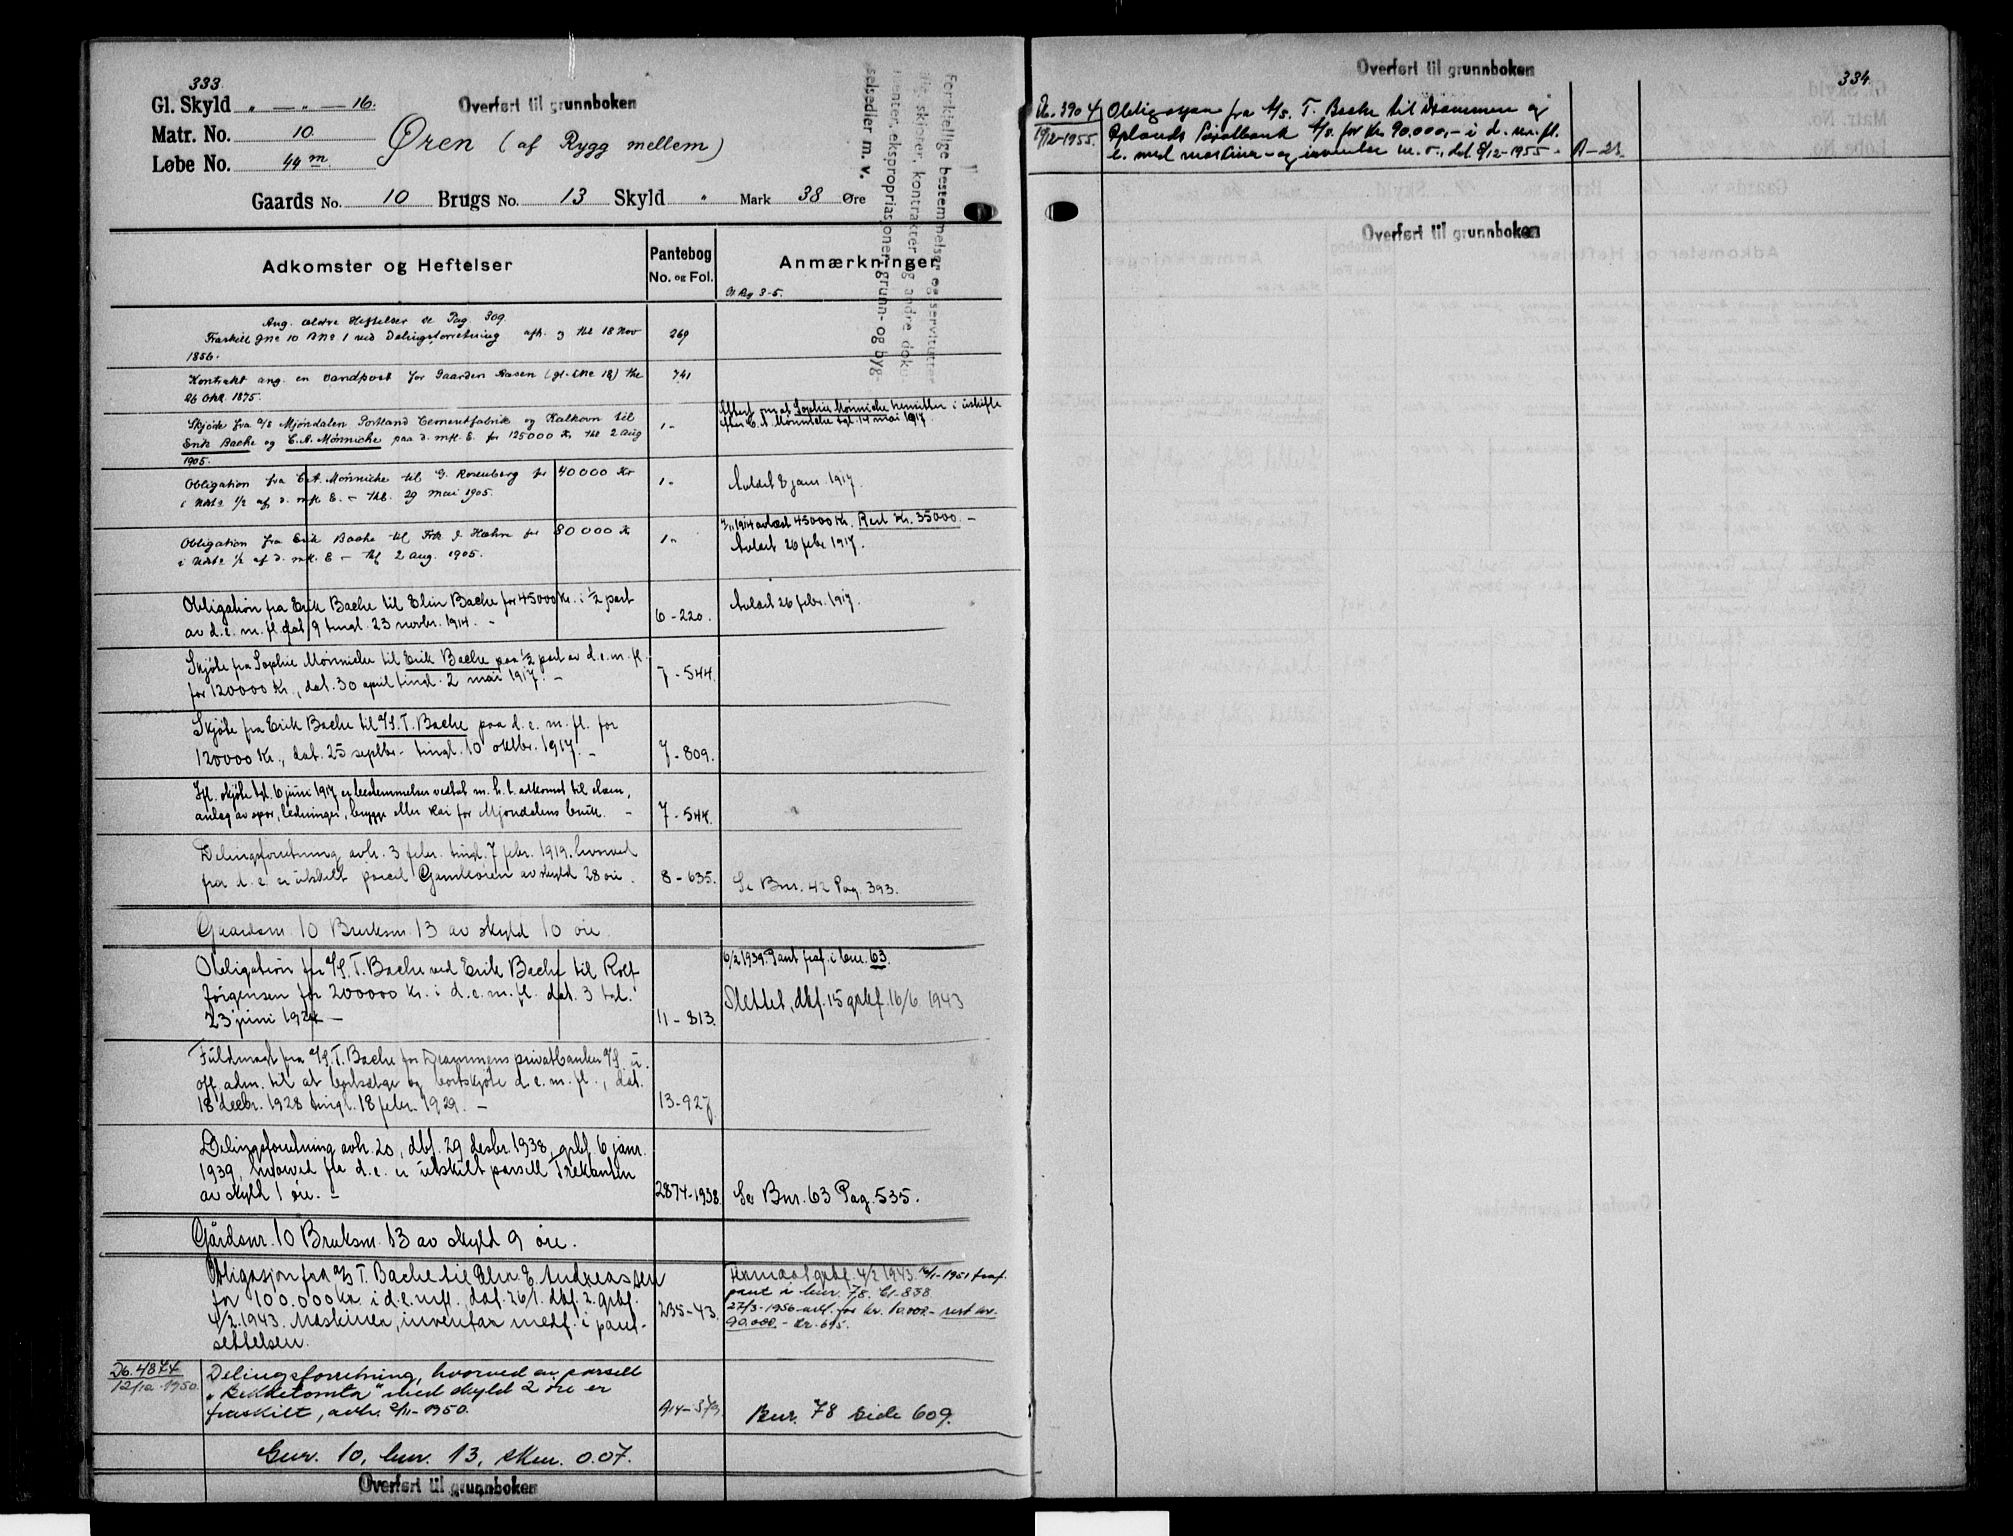 333.
Gl. Skyld " — " — 16.
Overført til grunnboken
Matr. No. 10
Øren (af Rygg mellem)
Løbe No. 44 m.
Gaards No. 10 Brugs No. 13 Skyld " Mark 38 Øre
Forskjellige bestemmelser og servitutter
skjøner, kontrakter og andre doku
menter, ekspropriasjoner, grunn- og byg-
selsedler m. v.
Adkomster og Heftelser
Pantebog
No. og Fol.
Anmærkninger
Gl. Rg 3-5.
Ang. ældre Heftelser se Pag. 309.
Fraskilt Gno 10 Bno 1 ved Delingsforretning afh. og thl 18 Nov 269
1856.
Kontrakt ang. en Vandpost for Gaarden Aasen (gl. Lno 18) thl 741
26 Okt. 1875.
Skjøde fra A/S Mjøndalen Portland Cementfabrik og Kalkovn til
Erik Bache og C. A. Mønniche paa d. mfl. E. for 125000 Kr. thl 2 Aug
1905.
Attest om at Sophie Mønniche hensitter i uskifte
efter C. A. Mønniche tgl. 14 mai 1917.
Obligation fra C. A. Mønniche til G. Rosenberg for 40000 Kr
i Udste 1/2 af d. mfl. E. – thl. 29 Mai 1905.
Avlæst 8 jan. 1917.
Obligation fra Erik Bache til Frk J. Høhne for 80000 Kr
i Udste 1/2 af d. mfl. E – thl 2 Aug. 1905.
1914 avlæst 45000 Kr. Rest Kr. 35000. –
Avlæst 26 febr 1917.
Obligation fra Erik Bache til Elin Bache for 45000 Kr. i 1/2 part
av d. e. m. fl. dat. 9 tingl. 23 novbr. 1914. –
6 - 220.
Avlæst 26 febr. 1917.
Skjøte fra Sophie Mønniche til Erik Bache paa 1/2 part av d. e. m. fl.
for 120000 Kr., dat. 30 april tingl. 2 mai 1917. –
7 - 544.
Skjøte fra Erik Bache til A/S. T. Bache paa d. e. m. fl. for
120000 Kr., dat. 25 septbr. tingl. 10 oktbr. 1917. –
7 - 809.
Ifl. skjøte tgl. 6 juni 1917 er bestemmelser vedtat m. h. t. adkomst til elven,
anlæg av spor, ledninger, brygge eller kai for Mjøndalens bruk. –
7 - 544.
Delingsforretning avh. 3 febr. tingl. 7 febr. 1919. hvorved
fra d. e. er utskilt parcel Gamleøren av skyld 28 øre.
8 - 635.
Se Bnr. 42 Pag. 393.
Gaardsnr. 10 Bruksnr. 13 av skyld 10 øre.
Obligation fra A/S. T. Bache ved Erik Bache til Rolf
Jørgensen for 200000 Kr. i d. e. m. fl. dat. 3 tgl.
23 juni 1924 –
11 - 813.
6/2 1939. Pant fraf. i bnr. 63.
Slettet, dbf. 15 grbf. 16/6. 1943
Fuldmagt fra A/S. T. Bache for Drammens privatbanker A/S. u.
off. adm. til at bortsælge og bortskjøte d. e. m. fl., dat.
18 decbr. 1928 tingl. 18 febr. 1929. –
13-927
Delingsforretning avh. 20, dbf. 29 desbr. 1938, grbf. 6 janr.
1939, hvorved fra d. e. er utskilt parsell Trekanten
av skyld 1 øre. –
2874-1938.
Se Bnr. 63 Pag. 535.
Gårdsnr. 10 Bruksnr. 13 av skyld 9 øre.
Obligasjon fra A/S T. Bache til E. Andreassen
for 100.000 kr. i d. e. mfl. dat. 26/1. dbf. 2. grbf.
4/2. 1943. Maskiner, inventar medf. i pant-
settelsen.
235-43.
grbf. 4/2 1943. 1951 fraf.
pant i bnr. 78. Cl-838
27/3-1956 avl. for kr. 10.000 - rest kr.
90.000.- Kr. 695.
Db. 4874
12/12-1950.
Delingsforretning, hvorved en parsell
"Bekketomta" med skyld 2 øre er
fraskilt, avh. 2/11-1950.
Bnr. 78 side 609.
Gnr. 10, bnr. 13, skm. 0.07.
Overført til grunnboken
Overført til grunnboken
334.
Db. 3904
19/12-1955.
Obligasjon fra A/S. T. Bache til Drammens og
Oplands Privatbank A/S. for kr. 90.000,- i d. m. fl.
b. med maskiner- og inventar m. v., dat. 8/12-1955 -
A-23.
Overført til grunnboken